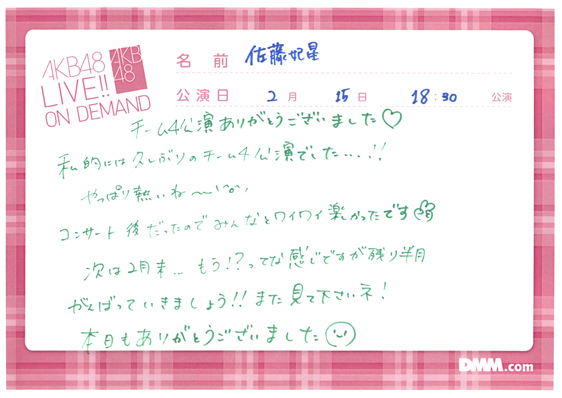 AKB48
LIVE!!
ON DEMAND
AKB
48
名前 佐藤妃星
公演日 2月 15日 18:30 公演
チーム4公演ありがとうございました♡
私的には久しぶりのチーム4公演でした...!!
やっぱり熱いね〜
コンサート後だったのでみんなとワイワイ楽しかったです
次は2月末... もう!?ってな感じですが残り半月
がんばっていきましょう!! また見て下さいネ!
本日もありがとうございました
DMM.com